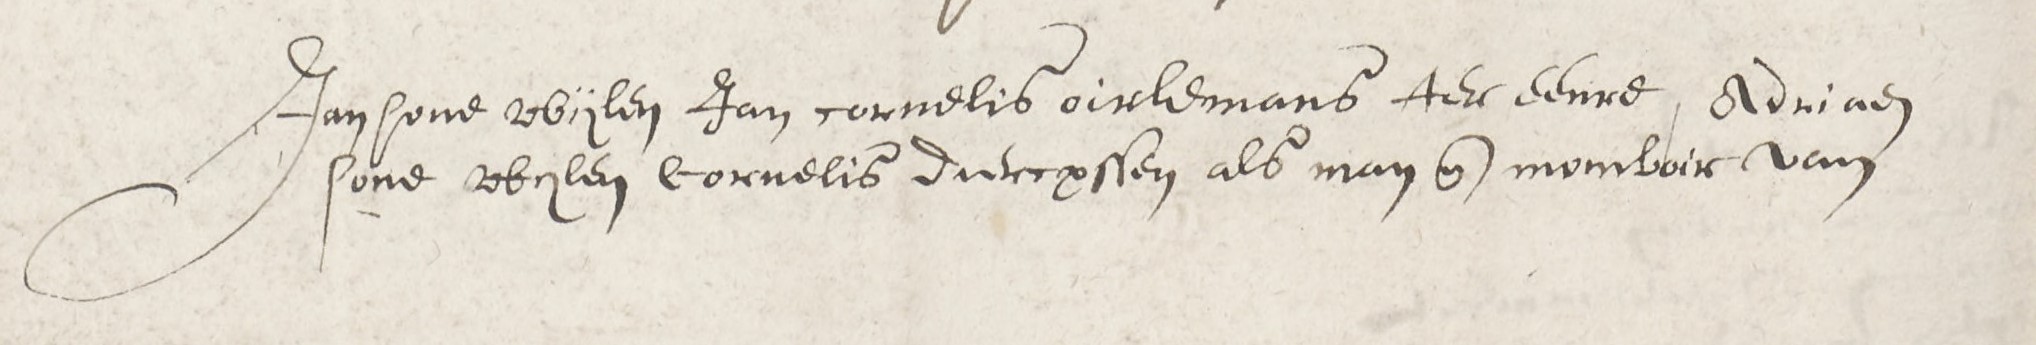 Jan sone wijlen Jan cornelis oirlemans ter eenre, Adriaen
sone wijlen Cornelis dircxssen als man en momboir van